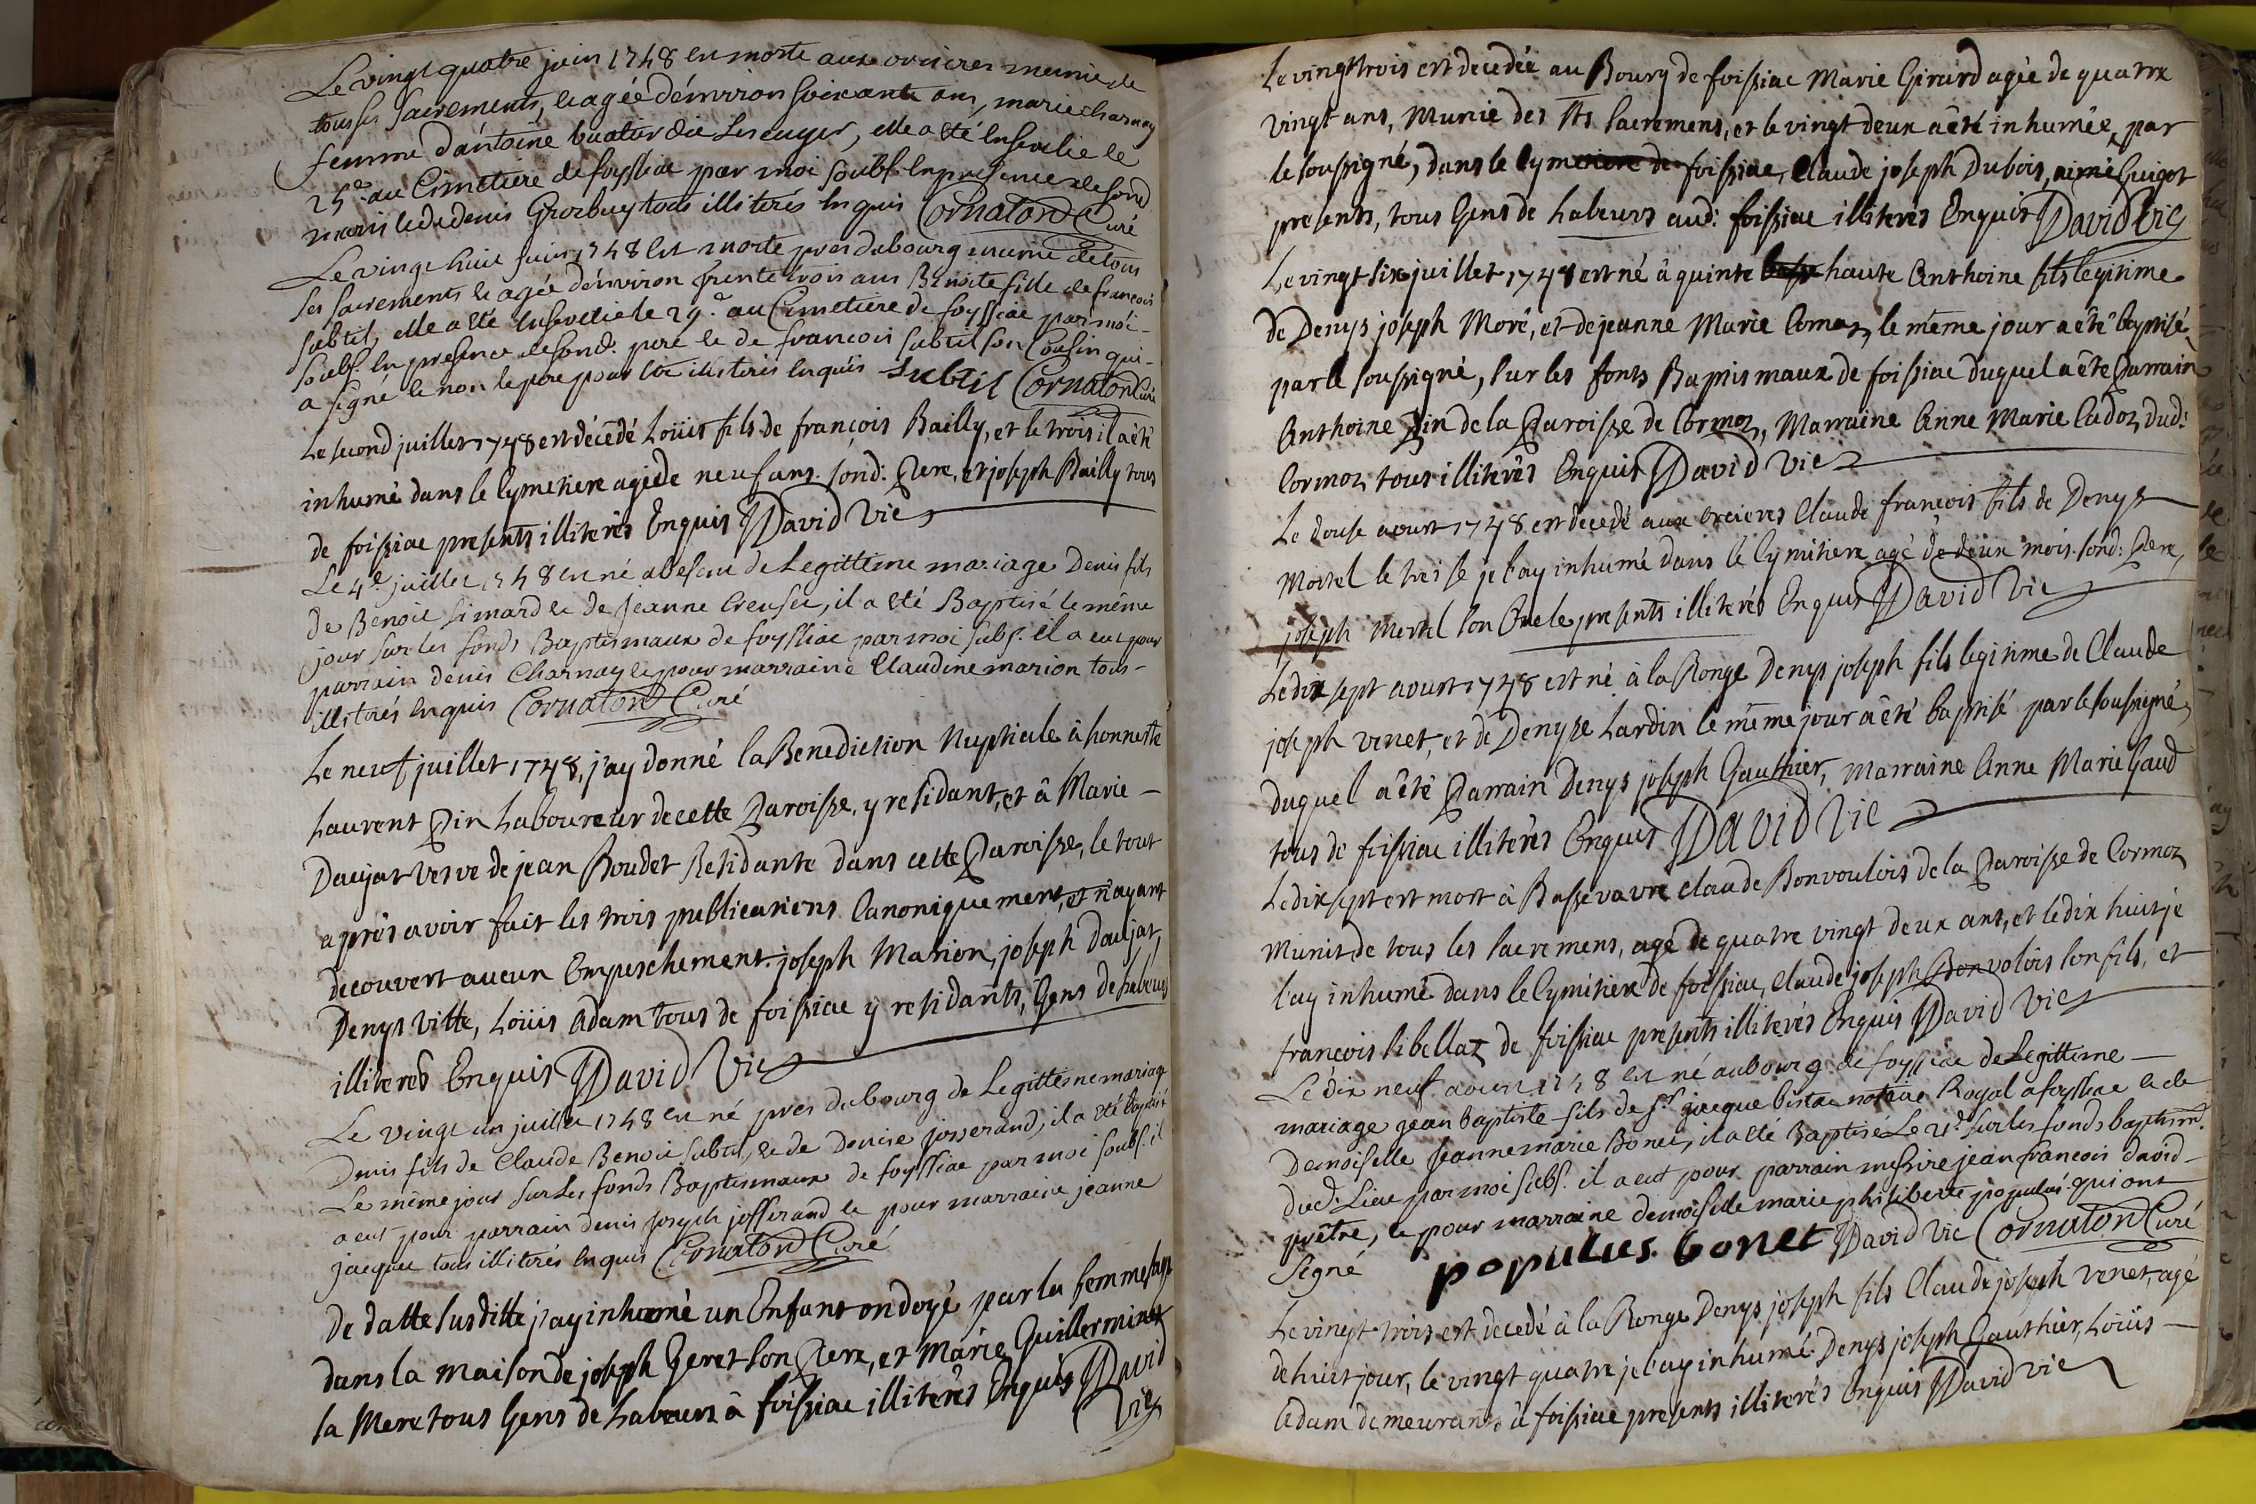 Le vingt quatre juin 1748 est morte aux orcieres munie de
tous ses sacrements, et agée d'environ soixante ans, marie charnay
femme d'antoine buatier dit, elle a été Ensevelie le
25e. au Cimetiere de foyssiac par moi soubs. En presence de sond.
mari et de denis tous illiterés Enquis Cornaton Curé
Le vingt huit juin 1748 Est morte pres du bourg munie de tous
ses sacrements et agée d'environ trente trois ans Benoite fille de francois
subtil, elle a été Ensevelie le 29e. au Cimetiere de foyssiac par moi
soubs. En presence de sond. pere et de francois subtil son Cousin qui
a signé et non le pere pour etre illiterés Enquis Subtil Cornaton Curé
Le second juillet 1748 est décédé Loüis fils de françois Bailly, et le trois il a été
inhumé dans le Cymetiere agé de neuf ans. sond: Pere, et joseph Bailly tous
de foissiac presents illiterés Enquis David Vic
Le 4e. juillet 1748 est né de Legittime mariage Denis fils
de Benoit Simard et de Jeanne Creuset, il a été Baptisé le même
jour sur les fonds Baptismaux de foyssiac par moi subs. il a eut pour
parrain denis Charnay et pour marraine Claudine marion tous
illiterés Enquis Cornaton Curé
Le neuf juillet 1748, j'ay donné la Benediction Nuptiale à honneste
Laurent Pin Laboureur de cette Paroisse, y residant, et à Marie
Daujat vesve de jean Boudet Residante dans cette Paroisse, le tout
après avoir fait les trois publications Canoniquement, et n'ayant
decouvert aucun Empeschement. joseph Marion, joseph Daujat,
Denys Vitte, Loüis Adam tous de foissiac y residants, Gens de Labeurs
illiterés Enquis David Vic
Le vingt un juillet 1748 est né pres du bourg de Legittime mariage
Denis fils de Claude Benoit subtil, et de Denise josserand, il a été baptisé
Le même jour sur Les fonds Baptismaux de foyssiac par moi soubs. il
a eut pour parrain denis joseph josserand et pour marraine jeanne
jacquet tous illiterés Enquis Cornaton Curé
De datte susditte j'ay inhumé un Enfant ondoyé par la femme sage
dans la maison de joseph Geret son Pere, et Marie Guillerminet
la Mere tous Gens de Labeurs à foissiac illiterés Enquis David
Vic
Le vingt trois est decedée au Bourg de foissiac Marie Girard agée de quatre
vingt ans, Munie des sts sacremens, et le vingt deux a êté inhumée, par
le soussigné, dans le Cymetiere de foissiac, Claude joseph Dubois, aimé Guigot
presents, tous Gens de Labeurs aud: foissiac illiterés Enquis David Vic
Le vingt six juillet 1748 est né à quinte haute Anthoine fils legitime
de Denys joseph Moré, et de jeanne Marie Comas, le même jour a êté baptisé
par le soussigné, sur les fonts Baptismaux de foissiac duquel a êté Parrain
Anthoine Pin de la Paroisse de Cormoz, Marraine Anne Marie Cadoz, dud:
Cormoz, tous illiterés Enquis David Vic
Le douse aoust 1748 est decedé aux orcieres Claude françois fils de Denys
Morel le treise je l'ay inhumé dans le Cymitiere agé de deux mois. sond: Pere,
joseph Morel son Oncle presents illiterés Enquis David Vic
Le dix sept aoust 1748 est né à la Ronge Denys joseph fils legitime de Claude
joseph venet, et de Denyse Lardin le même jour a êté baptisé par le soussigné,
duquel a êté Parrain Denys joseph Gauthier, Marraine Anne Marie Gaud
tous de foissiac illiterés Enquis David Vic
Le dix sept est mort à Bassevavre Claude Bonvoulois de la Paroisse de Cormoz
Munit de tous les sacremens, agé de quatre vingt deux ans, et le dix huit je
l'ay inhumé dans le Cymitiere de foissiac, Claude joseph Bonvolois son fils, et
françois Sibellaz de foissiac presents illiterés Enquis David Vic
Le dix neuf aoust 1748 est né au bourg de foyssiac de Legittime
mariage jean baptiste fils de Sr. jacque notaire Royal a foyssiac et de
Demoiselle Jeanne marie Bonet, il a été Baptisé Le 21e. sur les fonds baptism.
dud. Lieu par moi subs. il a eut pour parrain messire jean francois david
prêtre, et pour marraine demoiselle marie philiberte populus qui ont
Signé populus. bonet David Vic Cornaton Curé
Le vingt trois est decedé à la Ronge Denys joseph fils Claude joseph venet, agé
de huit jour, le vingt quatre je l'ay inhumé. Denys joseph Gauthier, Loüis
Adam demeurants à foissiac presents illiterés Enquis David Vic